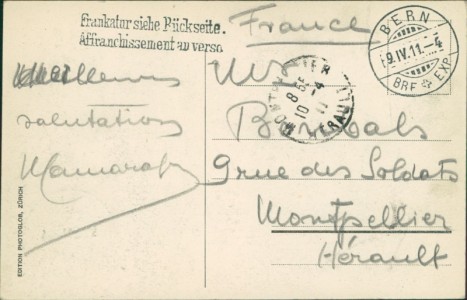 Frankatur siehe Rückseite.
Affranchissement au verso
France
BERN
9.IV.11.-4
BRF. EXP.
MONTPELLIER
10 8
-4
11
HERAULT
Meilleures
salutations
Mr
9 rue des Soldats
Montpellier
Hérault
EDITION PHOTOGLOB, ZÜRICH